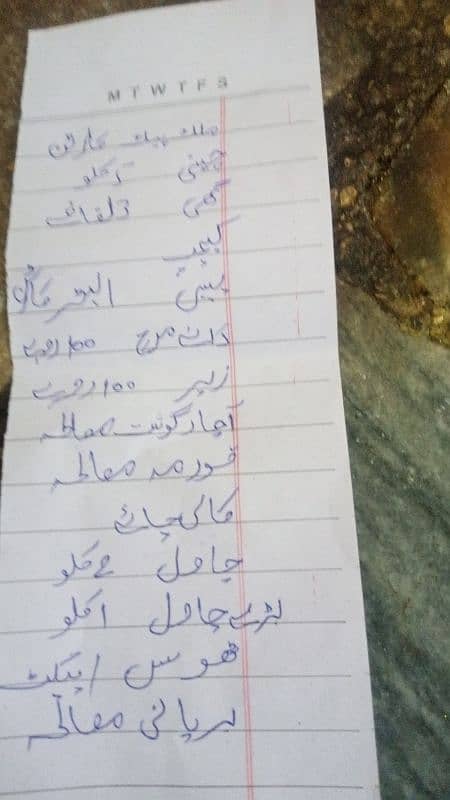 M T W T F S
ملک پیک کارٹن
چینی ۲ کلو
گھی 3 لفافے
کیچپ
بیسن
کالے مرچ ۱۰۰ روپے
زیرہ ۱۰۰ روپے
آچار گوشت مصالحہ
قورمہ مصالحہ
کالی چائے
چاول ۲ کلو
بڑے چاول ۱ کلو
۱ پیکٹ
بریانی مصالحہ